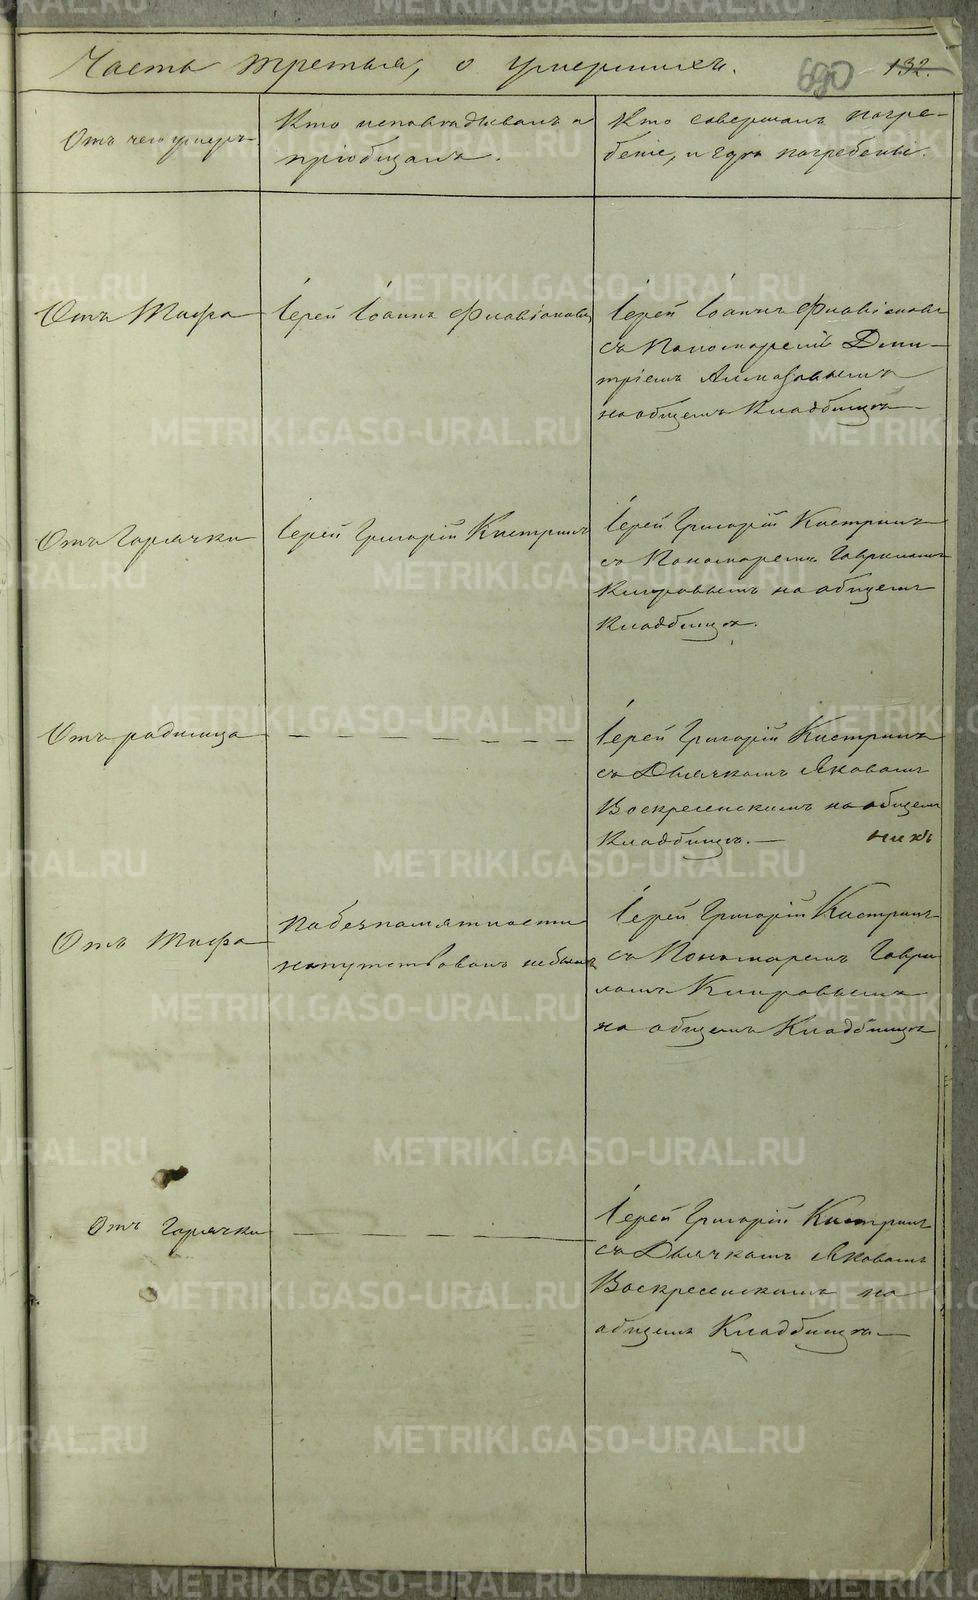 Часть третья, о умершихъ.
690 132.
Отъ чего умеръ
Кто исповѣдывалъ и
пріобщалъ.
Кто совершалъ погре-
беніе, и гдѣ погребены.
Отъ Тифа
Іерей Іоаннъ Флавіановъ
Іерей Іоаннъ Флавіановъ
съ Пономаремъ Дми-
тріемъ
на общемъ Кладбищѣ
Отъ Горячки
Іерей Григорій Кистринъ
Іерей Григорій Кистринъ
съ Пономаремъ Гавриломъ
Кипровымъ на общемъ
Кладбищѣ.
Отъ родимца
Іерей Григорій Кистринъ
съ Дьячкомъ Яковомъ
Воскресенскимъ на общем
Кладбищѣ.
Отъ Тифа
По безпамятности
напутствованъ небылъ
Іерей Григорій Кистринъ
съ Пономаремъ Гаври
ломъ Кипровымъ
на общемъ Кладбищѣ
Отъ Горячки
Іерей Григорій Кистринъ
съ Дьячкомъ Яковомъ
Воскресенскимъ на
общемъ Кладбищѣ
METRIKI.GASO-URAL.RU